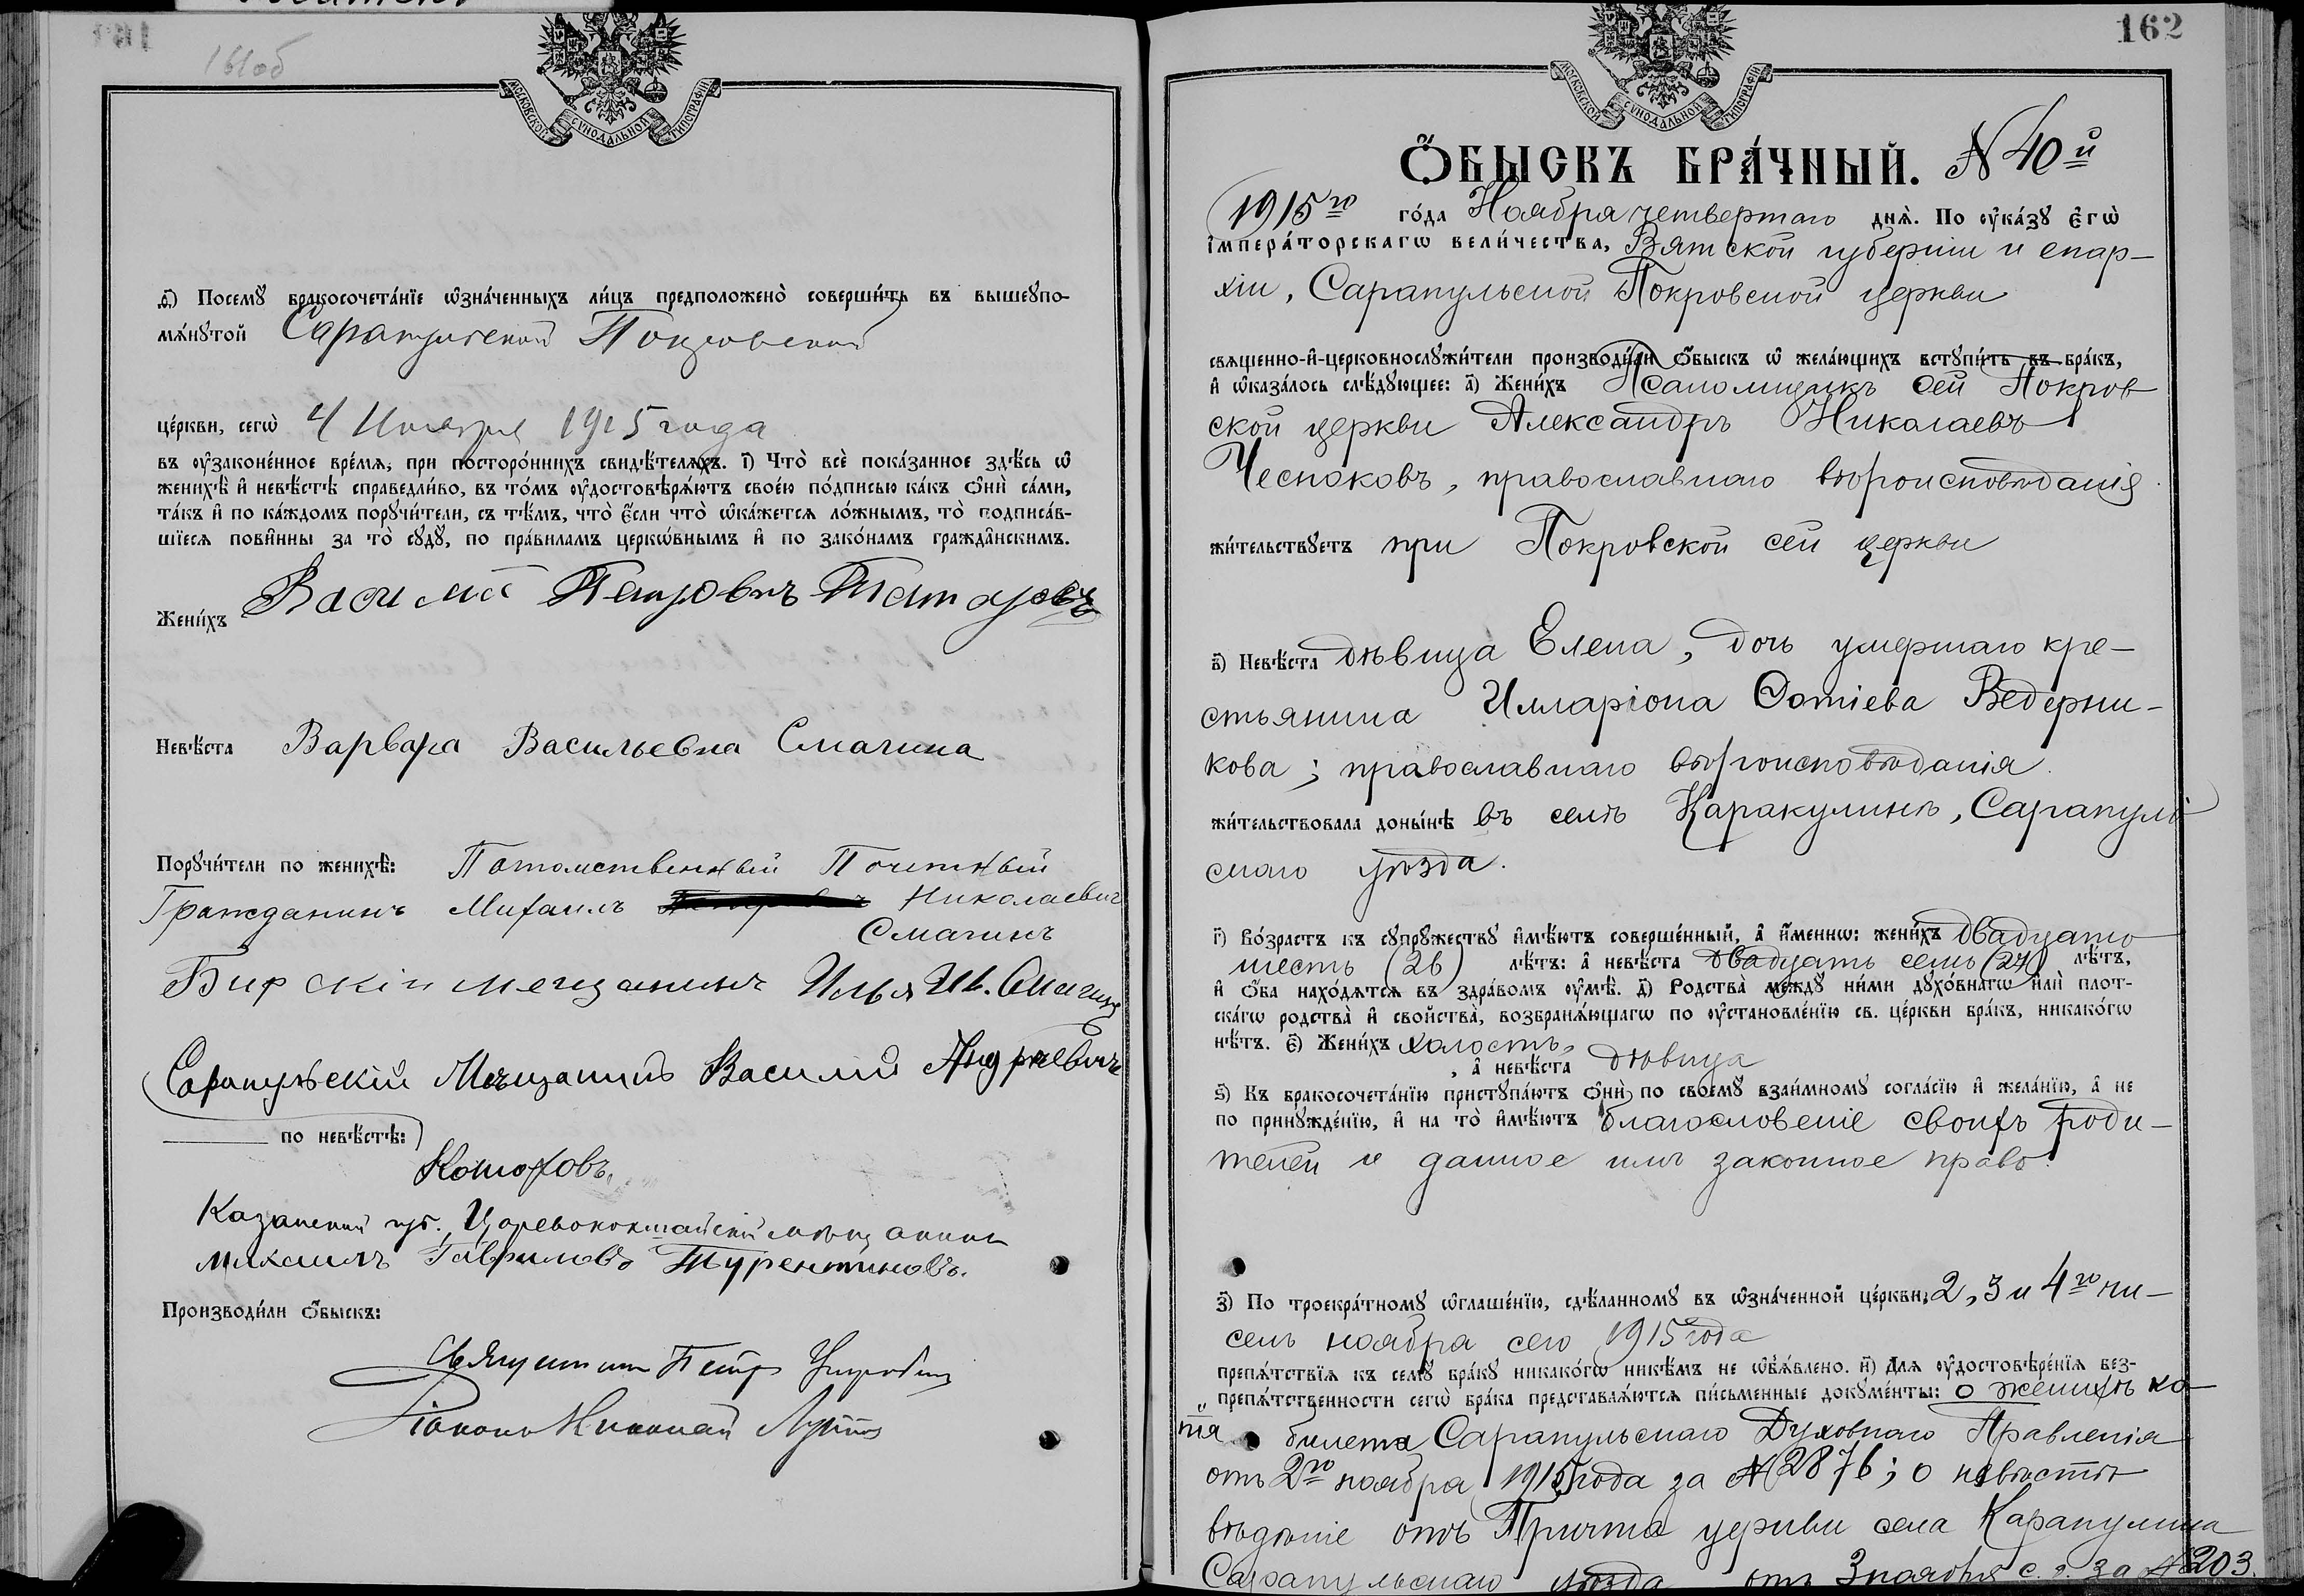 161об
МОСКОВСКОЙ СѴНОДАЛЬНОЙ ТИПОГРАФІИ
ѳ҃) Посемꙋ бракосочета́нїе ѡ҆зна́ченныхъ ли́цъ предположено̀ соверши́ть въ вышеꙋпо-
мѧ́нꙋтой Сарапульской Покровской
це́ркви, сегѡ̀ 4 Ноября 1915 года
въ ᲂу҆законе́нное вре́мѧ, при посторо́ннихъ свидѣ́телѧхъ. і҃) Что̀ всѐ пока́занное здѣ́сь ѡ҆
женихѣ̀ и҆ невѣ́стѣ справедли́во, въ то́мъ ᲂу҆достовѣрѧ́ютъ свое́ю по́дписью ка́къ ѻ҆нѝ са́ми,
та́къ и҆ по ка́ждомъ порꙋчи́тели, съ тѣ́мъ, что̀ є҆́сли что̀ ѡ҆ка́жетсѧ ло́жнымъ, то̀ подписа́в-
шїесѧ пови́нны за то̀ сꙋдꙋ̀, по пра́виламъ церко́внымъ и҆ по зако́намъ гражда́нскимъ.
Жени́хъ Василій Петровичъ Татауровъ
Невѣ́ста Варвара Васильевна Смагина
Порꙋчи́тели по женихѣ̀: Потомственный Почетный
Гражданинъ Михаилъ Николаевич
Смагинъ
Бирскій мещанинъ Илья Ив. Смагинъ
Сарапульскій Мѣщанинъ Василий Андреевичъ
по невѣ́стѣ:
Казанской губ. Царевококшайскій мѣщанинъ
Михаилъ Гавриловъ Турентиновъ.
Производи́ли ѻ҆́быскъ:
Священникъ Петръ
Діаконъ Николай
162
МОСКОВСКОЙ СѴНОДАЛЬНОЙ ТИПОГРАФІИ
Ѻ҆́БЫСКЪ БРА́ЧНЫЙ. N 40й
1915го го́да Ноября четвертаго днѧ̀. По ᲂу҆ка́зꙋ є҆гѡ̀
і҆мпера́торскагѡ вели́чества, Вятской губерніи и епар-
хіи, Сарапульской Покровской церкви
свѧщенно-и҆-церковнослꙋжи́тели производи́ли ѻ҆́быскъ ѡ҆ жела́ющихъ встꙋпи́ть въ бра́къ,
и҆ ѡ҆каза́лось слѣ́дꙋющее: а҃) Жени́хъ Псаломщикъ сей Покров
ской церкви Александръ Николаевъ
Чесноковъ, православнаго вѣроисповѣданія
жи́тельствꙋетъ при Покровской сей церкви
в҃) Невѣ́ста дѣвица Елена, дочь умершаго кре-
стьянина Илларіона Фотіева Ведерни-
кова; православнаго вѣроисповѣданія.
жи́тельствовала доны́нѣ въ селѣ Каракулинѣ, Сарапуль
скаго уѣзда.
г҃) Во́зрастъ къ сꙋпрꙋ́жествꙋ и҆мѣ́ютъ соверше́нный, а҆ и҆́меннѡ: жени́хъ двадцать
шесть (26) лѣ́тъ: а҆ невѣ́ста двадцать семь (27) лѣ́тъ,
и҆ ѻ҆́ба нахо́дѧтсѧ въ здра́вомъ ᲂу҆мѣ̀. д҃) Родства̀ междꙋ ни́ми дꙋхо́внагѡ и҆лѝ плот-
ска́гѡ родства̀ и҆ свойства̀, возбранѧ́ющагѡ по ᲂу҆становле́нїю св. це́ркви бра́къ, никако́гѡ
нѣ́тъ. є҃) Жени́хъ холостъ,
, а҆ невѣ́ста дѣвица
ѕ҃) Къ бракосочета́нїю пристꙋпа́ютъ ѻ҆нѝ по своемꙋ̀ взаи́мномꙋ согла́сїю и҆ жела́нїю, а҆ не
по принꙋжде́нїю, и҆ на то̀ и҆мѣ́ютъ благословеніе своихъ роди-
телей и данное имъ законное право.
з҃) По троекра́тномꙋ ѡ҆глаше́нїю, сдѣ́ланномꙋ въ ѡ҆зна́ченной це́ркви: 2, 3 и 4го чи-
селъ ноября сего 1915 года
препѧ́тствїѧ къ семꙋ̀ бра́кꙋ никако́гѡ никѣ́мъ не ѡ҆б̾ѧ́влено. и҃) Длѧ ᲂу҆достовѣре́нїѧ без-
препѧ́тственности сегѡ̀ бра́ка представлѧ́ютсѧ пи́сьменные докꙋме́нты: о женихѣ ко-
пія билета Сарапульскаго Духовнаго Правленія
отъ 2го ноября 1915 года за N 2876; о невѣстѣ
вѣдѣніе отъ Причта церкви села Каракулина
Сарапульскаго уѣзда отъ 3 ноября с. г. за N 203.